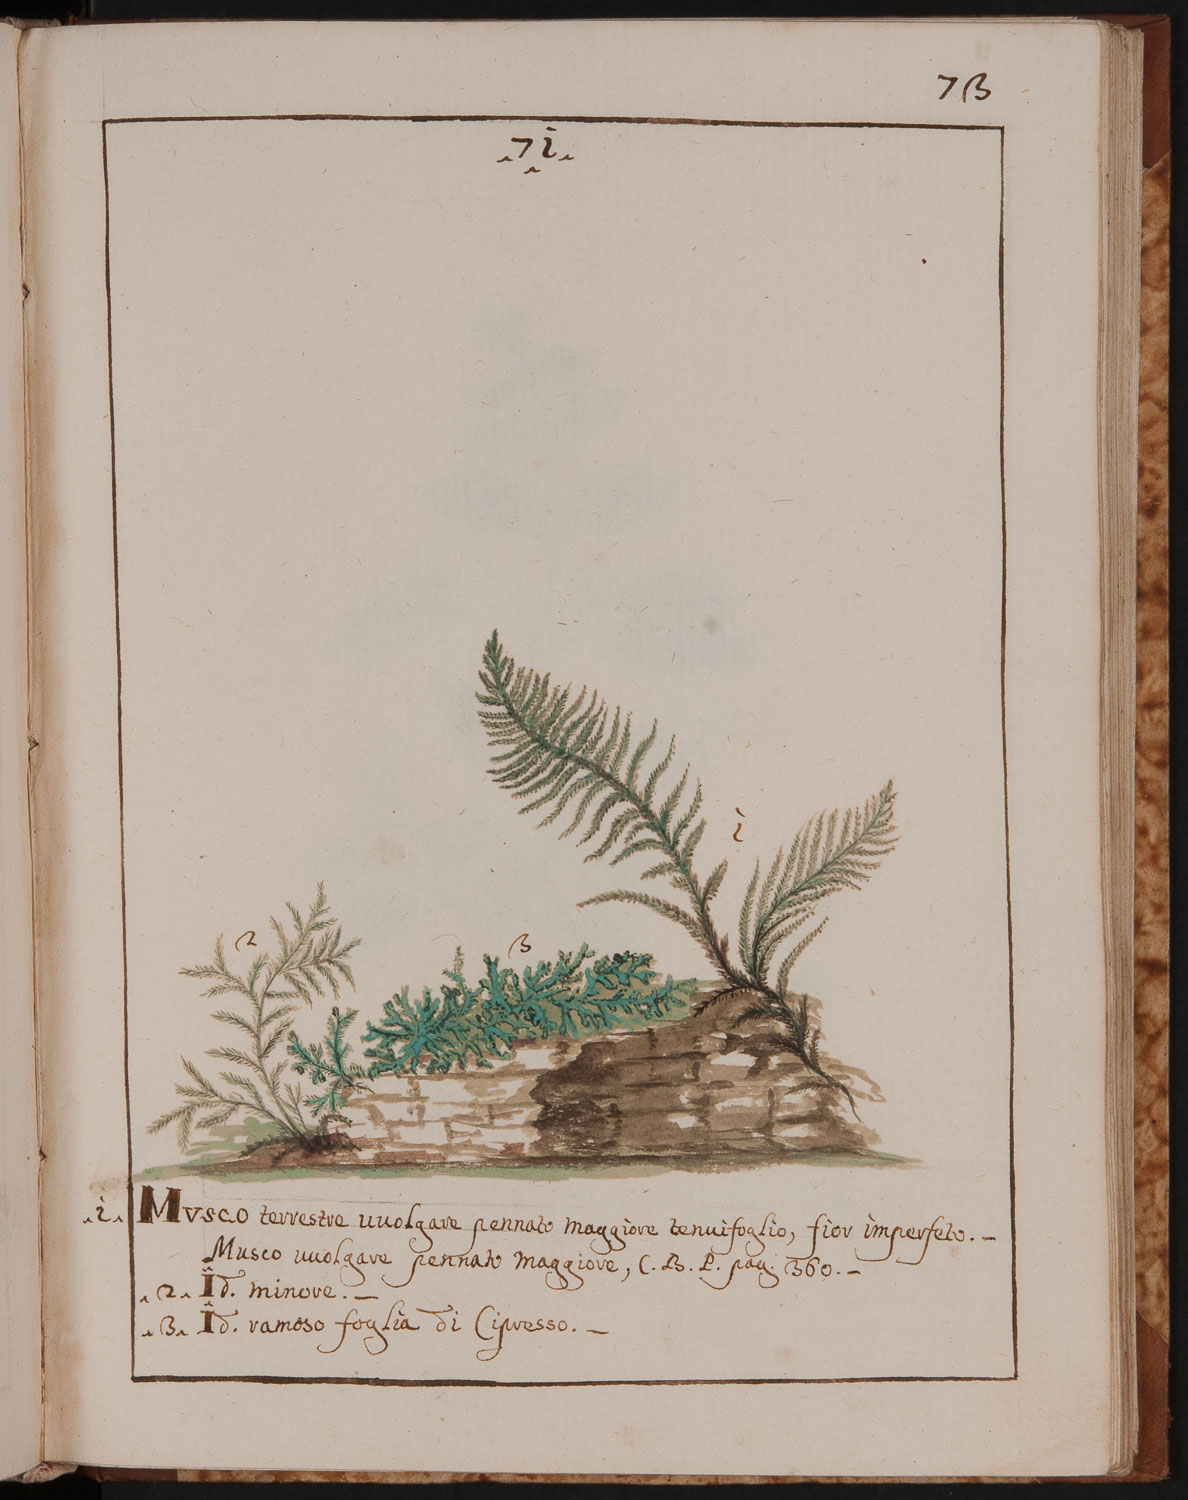 73
.71.
1
2
3
.1. Musco terrestre uuolgare pennato maggiore tenuifoglio, fior imperfeto. –
Musco uuolgare pennato maggiore, C. B. P. pag. 360. –
.2. Id. minore. –
.3. Id. ramoso foglia di Cipresso. –